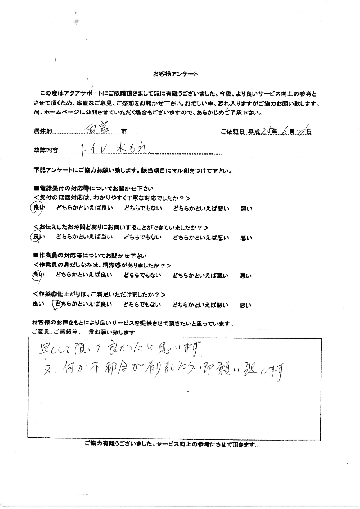 お客様アンケート
この度はアクアサポートにご依頼頂きまして誠に有難うございました。今後、より良いサービス向上の参考と
させて頂くため、率直なご意見、ご感想をお聞かせ下さい。お忙しい中、恐れ入りますがご協力お願い致します。
尚、ホームページに掲載させていただく場合もございますので、あらかじめご了承下さい。
市
ご依頼日 平成 年 月 日
故障内容 トイレ 水もれ
下記アンケートにご協力お願い致します。該当項目に丸印をつけて下さい。
■電話受付の対応等についてお聞かせ下さい
<受付の電話対応は、わかりやすく丁寧な対応でしたか?>
良い どちらかといえば良い どちらでもない どちらかといえば悪い 悪い
<お伝えしたお時間通りにお伺いすることができていましたか?>
良い どちらかといえば良い どちらでもない どちらかといえば悪い 悪い
■作業員の対応等についてお聞かせ下さい
<作業員の身だしなみは、清潔感がありましたか?>
良い どちらかといえば良い どちらでもない どちらかといえば悪い 悪い
<作業の仕上がりは、ご満足いただけましたか?>
良い どちらかといえば良い どちらでもない どちらかといえば悪い 悪い
お客様のお声をもとにより良いサービスを提供させて頂きたいと思っています。
ご意見、ご感想等、お願い致します
して頂いて良かったと思います
又、何か不都合が有りましたらお願い致します
ご協力有難うございました。サービス向上の参考にさせて頂きます。